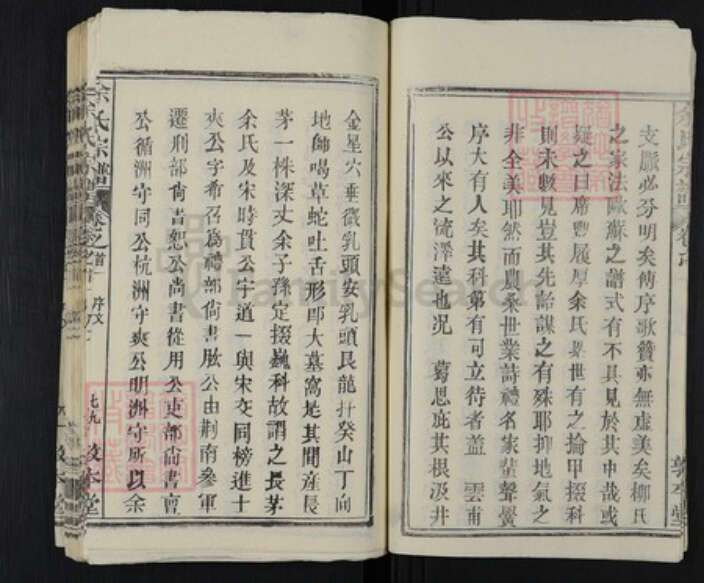 支脈必分明矣傳序歌贊亦無虛美矣柳氏
之家法歐蘇之譜式有不具見於其中哉或
疑之曰席豐履厚余氏世有之掄甲掇科
則未數見豈其先詒謀之有殊耶抑地氣之
非全美耶然而農桑世業詩禮名家蜚聲黌
序大有人矣其科第有可立待者蓋 雲甫
公以來之流澤遠也况 萄恩庇其根汲井
余氏宗譜
敦本堂
金星穴垂微乳頭安乳頭艮龍扦癸山丁向
地師喝草蛇吐舌形即大墓窩是其間產長
茅一株深丈余子孫定掇巍科故謂之長茅
余氏及宋時貫公字道一與宋交同榜進士
爽公字希召為禮部尚書肱公由荆南參軍
遷刑部尚書恕公尚書從用公吏部尚書亶
公循洲守同公杭洲守爽公明洲守所以余
余氏宗譜
卷之首
序文
敦本堂
FamilySearch